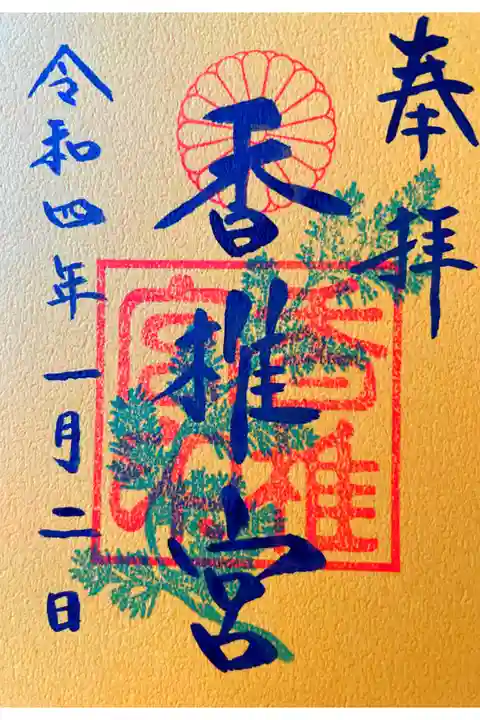 奉拝
香椎宮
令和四年一月二日